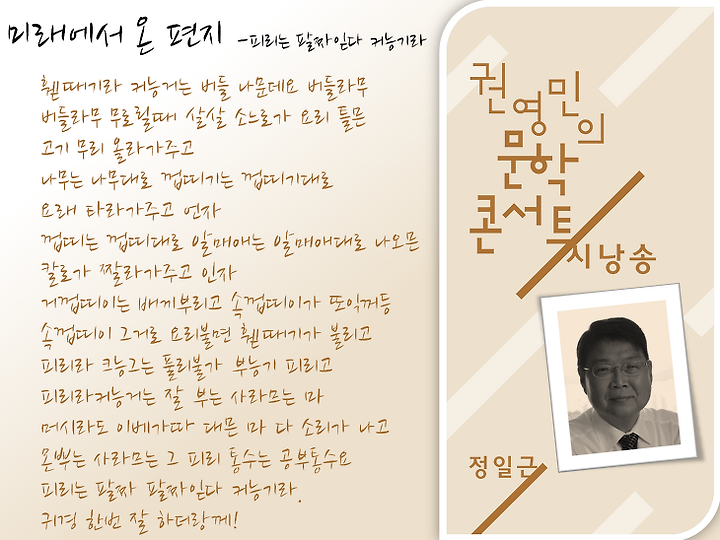 미래에서 온 편지 -피리는 팔짜잉다 커능기라
훼때기라 커능거는 버들 나문데요 버들라무
버들라무 무로훨때 살살 소느로가 요리 틀믄
고기 무리 올라가주고
나무는 나무대로 껍띠기는 껍띠기대로
요래 타라가주고 언자
껍띠는 껍띠대로 알매애는 알매애대로 나오믄
칼로가 짤라가주고 인자
거껍띠이는 배끼부리고 속껍띠이가 또익꺼등
속껍띠이 그거로 요리불면 훼때기가 불리고
피리라 크능그는 풀리불가 부능기 피리고
피리라커능거는 잘 부는 사라므는 마
머시라도 이베가따 대믄 마 다 소리가 나고
몬뿌는 사라므는 그 피리 통수는 공부통수요
피리는 팔짜 팔짜잉다 커능기라.
귀경 한번 잘 하더랑께!
권영민의
문학
콘서트
시낭송
정일근